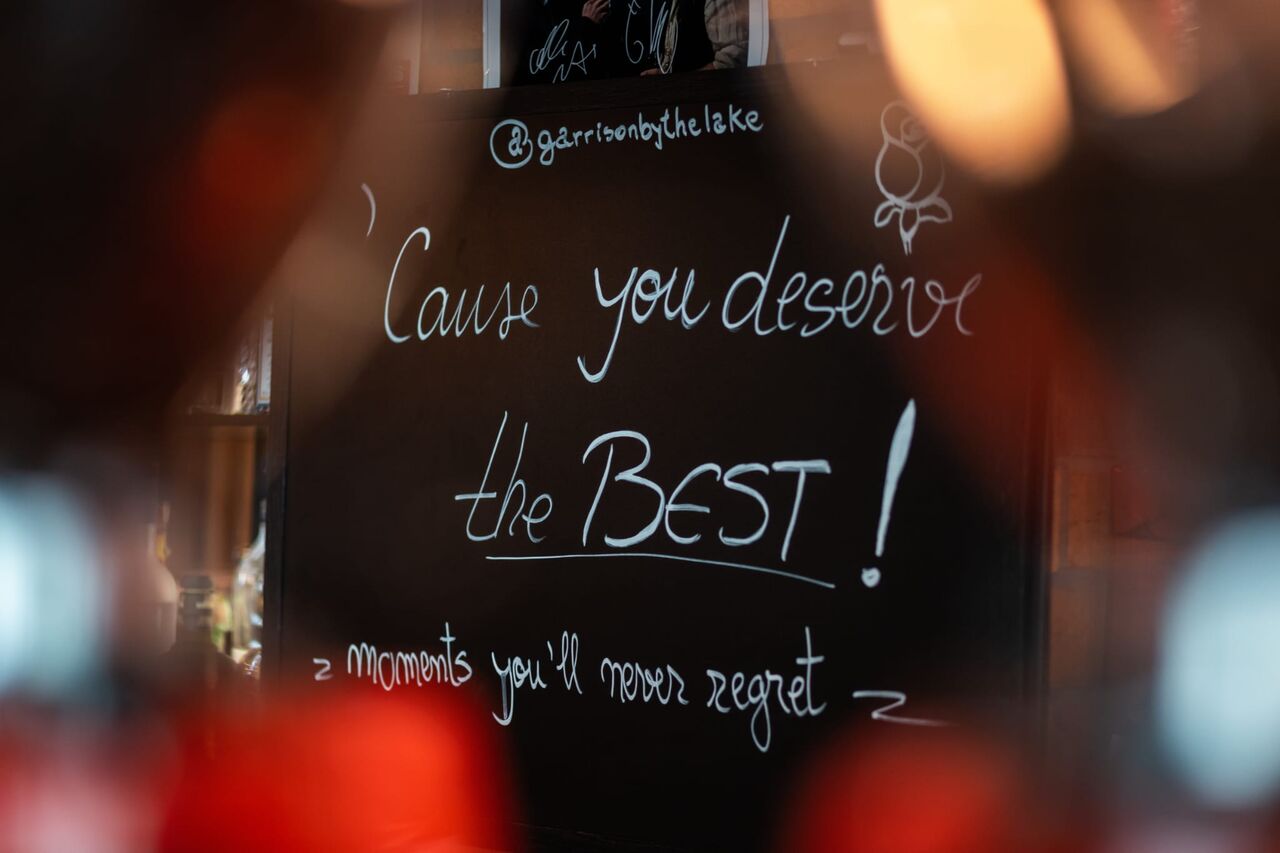 @garrisonbythelake
'Cause you deserve
the BEST!
~ moments you'll never regret ~